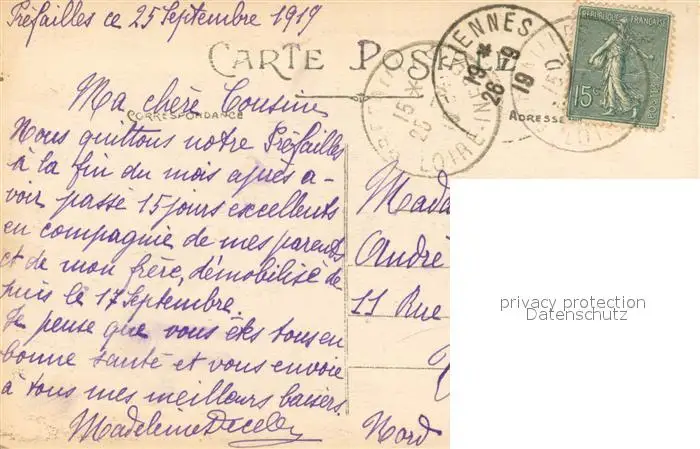 Préfailles ce 25 Septembre 1919
CARTE POSTALE
CORRESPONDANCE
ADRESSE
Ma chère Cousine
Nous quittons notre Préfailles
à la fin du mois après a-
voir passé 15 jours excellents
en compagnie de mes parents
et de mon frère, démobilisé de-
puis le 17 Septembre.
Je pense que vous êtes tous en
bonne santé et vous envoie
à tous mes meilleurs baisers.
Madeleine
Mada
André
11 Rue
Nord
RÉPUBLIQUE FRANÇAISE
15c
POSTES
IENNES
19 * 19
26
LOIRE-INF
privacy protection
Datenschutz